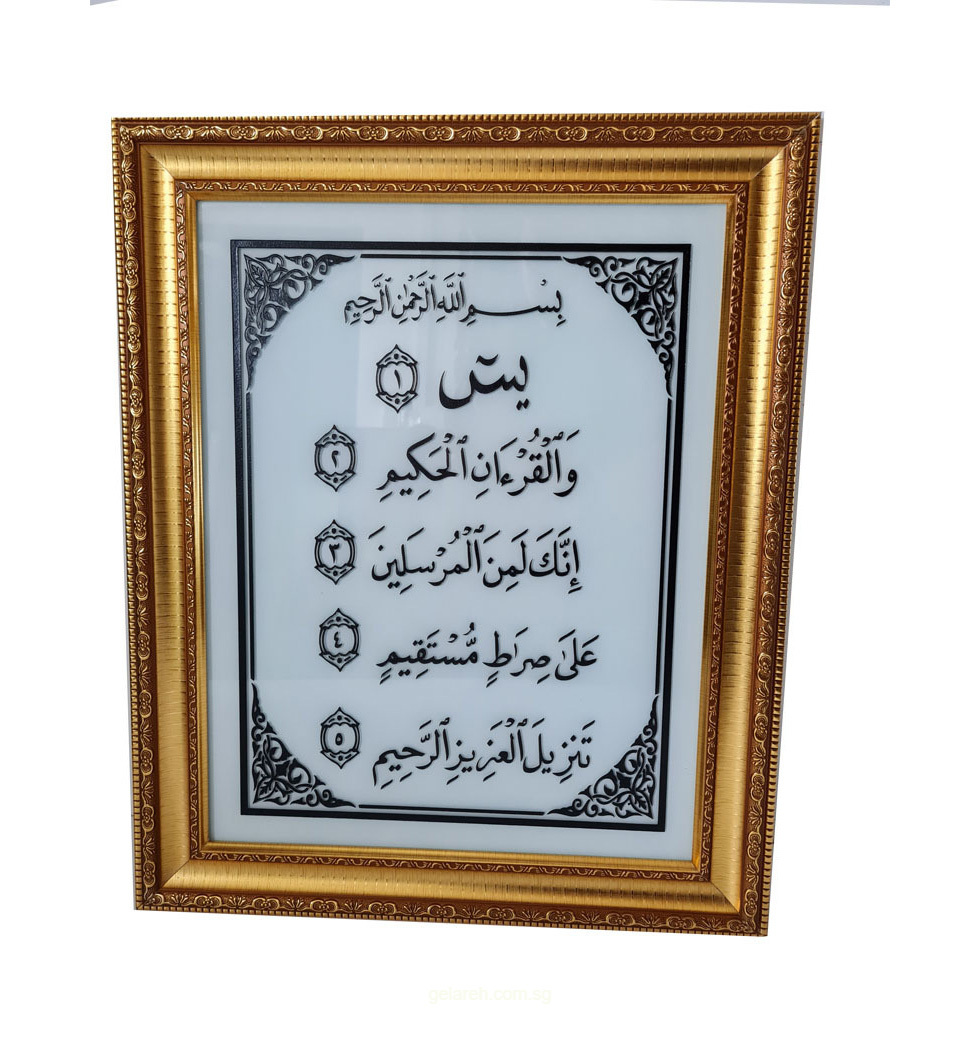 بِسْمِ ٱللَّهِ ٱلرَّحْمَٰنِ ٱلرَّحِيمِ
يسٓ ١
وَٱلْقُرْءَانِ ٱلْحَكِيمِ ٢
إِنَّكَ لَمِنَ ٱلْمُرْسَلِينَ ٣
عَلَىٰ صِرَاطٍ مُّسْتَقِيمٍ ٤
تَنزِيلَ ٱلْعَزِيزِ ٱلرَّحِيمِ ٥
gelareh.com.sg